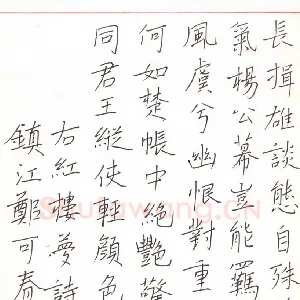 長揖雄談態自殊
氣楊公幕豈能羈
風虞兮幽恨對重
何如楚帳中
同君王縱使輕顏色
右紅樓夢詩
鎮江鄭可春